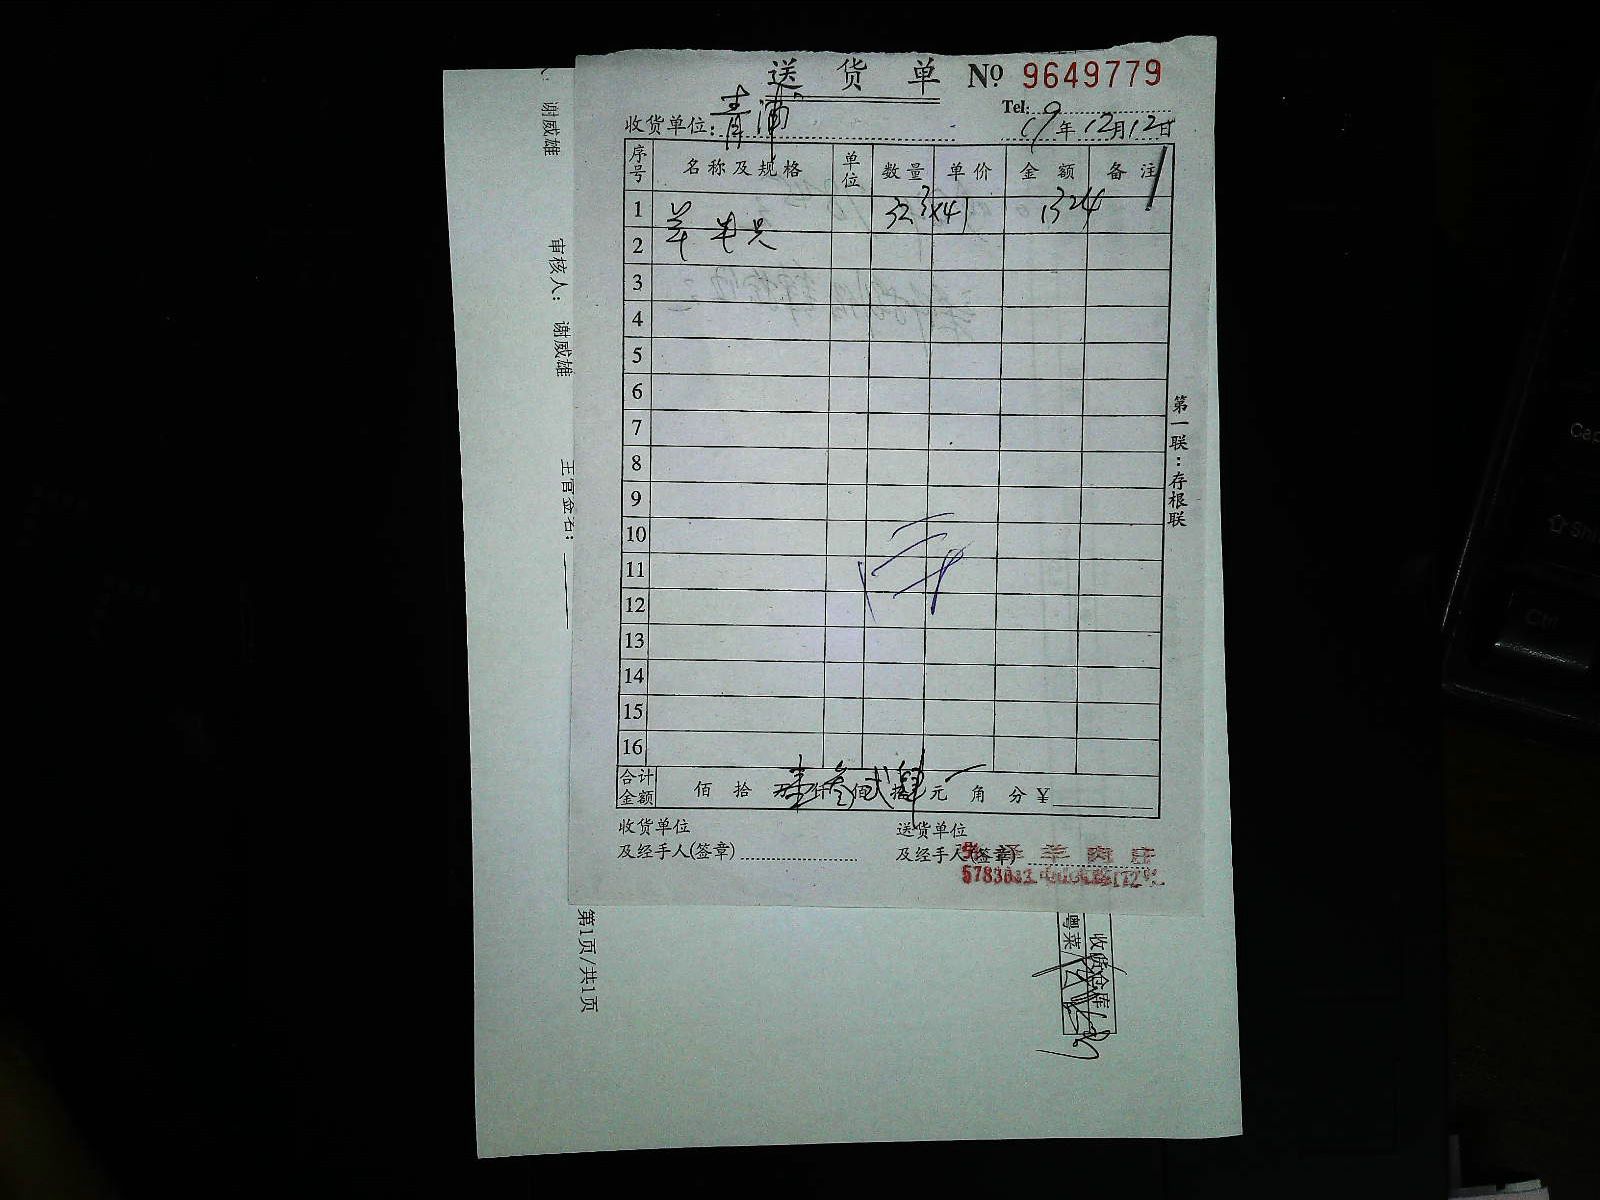 送货单 № 9649779
Tel:
收货单位: 青浦 19年12月12日
序号 名称及规格 单位 数量 单价 金额 备注
1 羊半只 32.3×41 1324
2
3
4
5
6
7
8
9
10
11
12
13
14
15
16
合计金额 佰 拾 万壹仟叁佰贰拾肆元 角 分 ¥
收货单位 送货单位
及经手人(签章) 及经手人(签章)
羊肉庄
第一联:存根联
谢威雄
审核人: 谢威雄
第1页/共1页
收货仓库
粤菜